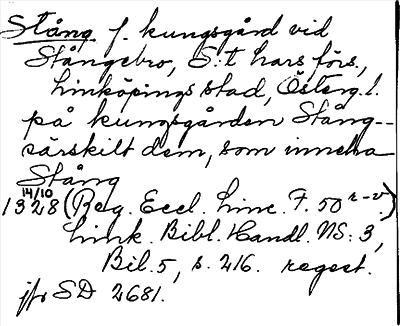 Stång f. kungsgård vid
Stångebro, S:t Lars förs.,
Linköpings stad, Österg. l.
på kungsgården Stång --
särskilt dem, som inneha
Stång
14/10
1328 (Reg. Eccl. Linc. F. 50 r-v.)
Link. Bibl. Handl. NS: 3,
Bil. 5, s. 216. regest.
jfr SD 2681.